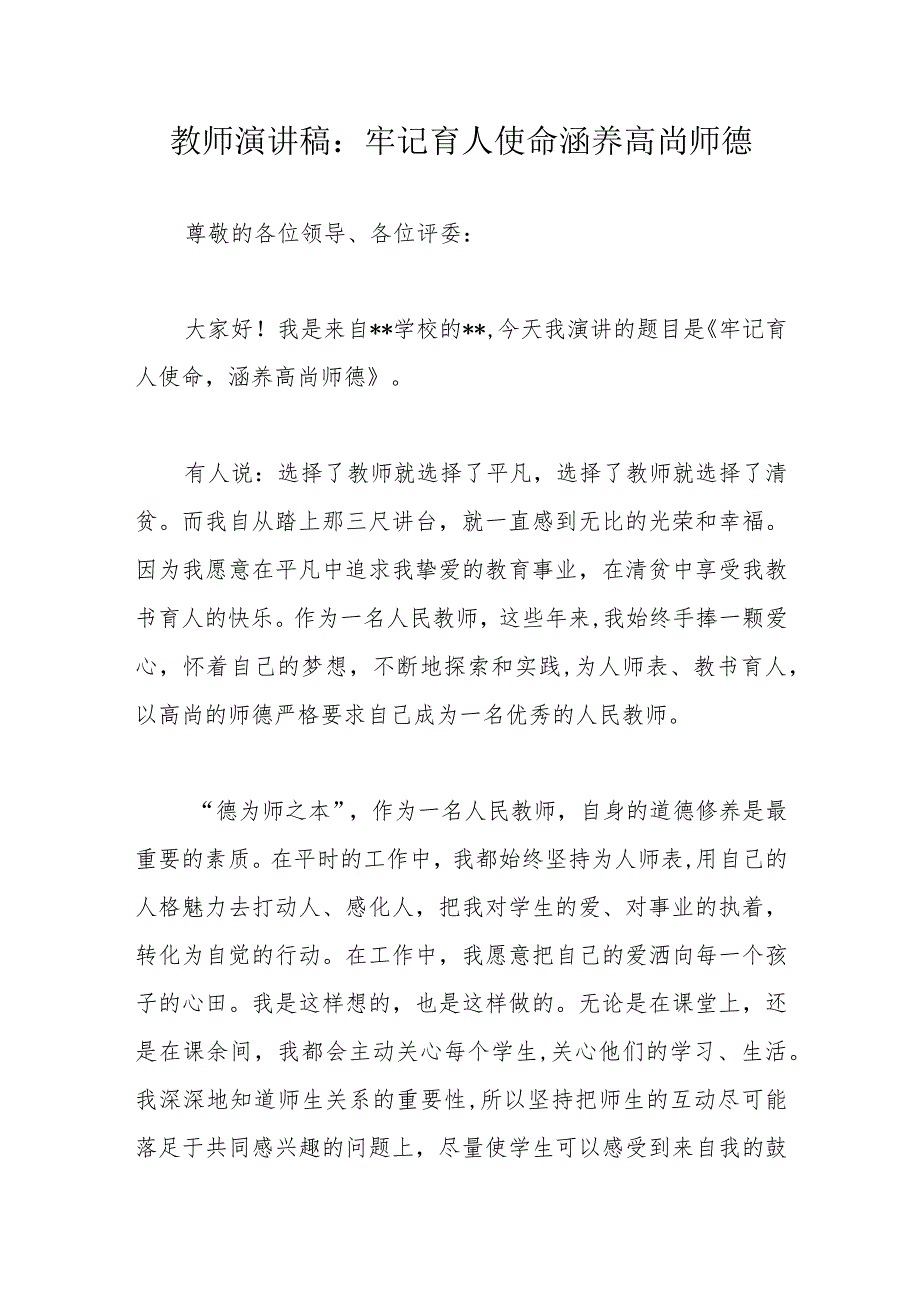 教师演讲稿：牢记育人使命涵养高尚师德
尊敬的各位领导、各位评委：
大家好！我是来自**学校的**,今天我演讲的题目是《牢记育
人使命，涵养高尚师德》。
有人说：选择了教师就选择了平凡，选择了教师就选择了清
贫。而我自从踏上那三尺讲台，就一直感到无比的光荣和幸福。
因为我愿意在平凡中追求我挚爱的教育事业，在清贫中享受我教
书育人的快乐。作为一名人民教师，这些年来,我始终手捧一颗爱
心，怀着自己的梦想，不断地探索和实践,为人师表、教书育人，
以高尚的师德严格要求自己成为一名优秀的人民教师。
“德为师之本”，作为一名人民教师，自身的道德修养是最
重要的素质。在平时的工作中，我都始终坚持为人师表,用自己的
人格魅力去打动人、感化人，把我对学生的爱、对事业的执着，
转化为自觉的行动。在工作中，我愿意把自己的爱洒向每一个孩
子的心田。我是这样想的，也是这样做的。无论是在课堂上，还
是在课余间，我都会主动关心每个学生,关心他们的学习、生活。
我深深地知道师生关系的重要性,所以坚持把师生的互动尽可能
落足于共同感兴趣的问题上，尽量使学生可以感受到来自我的鼓